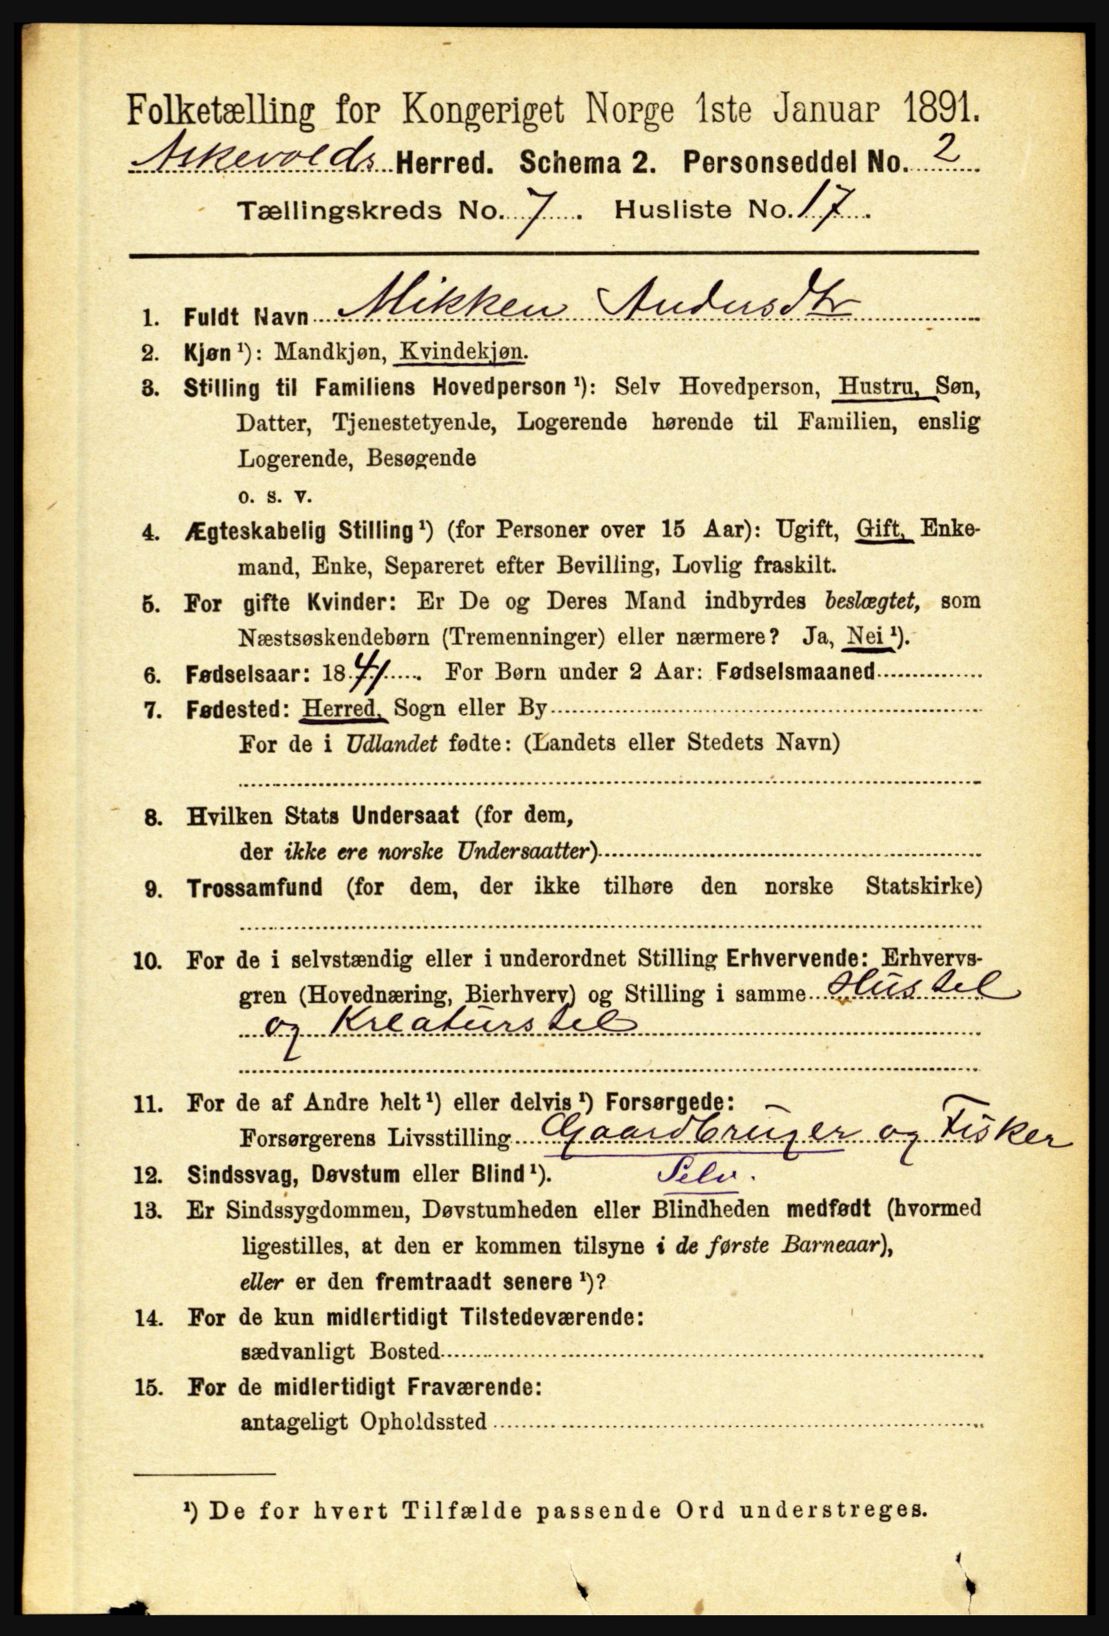 Folketælling for Kongeriget Norge 1ste Januar 1891.
Askevolds Herred. Schema 2. Personseddel No. 2
Tællingskreds No. 7. Husliste No. 17.
1. Fuldt Navn Mikken Andersdtr
2. Kjøn ¹): Mandkjøn, Kvindekjøn.
3. Stilling til Familiens Hovedperson ¹): Selv Hovedperson, Hustru, Søn,
Datter, Tjenestetyende, Logerende hørende til Familien, enslig
Logerende, Besøgende
o. s. v.
4. Ægteskabelig Stilling ¹) (for Personer over 15 Aar): Ugift, Gift, Enke-
mand, Enke, Separeret efter Bevilling, Lovlig fraskilt.
5. For gifte Kvinder: Er De og Deres Mand indbyrdes beslægtet, som
Næstsøskendebørn (Tremenninger) eller nærmere? Ja, Nei ¹).
6. Fødselsaar: 1841. For Børn under 2 Aar: Fødselsmaaned
7. Fødested: Herred, Sogn eller By
For de i Udlandet fødte: (Landets eller Stedets Navn)
8. Hvilken Stats Undersaat (for dem,
der ikke ere norske Undersaatter)
9. Trossamfund (for dem, der ikke tilhøre den norske Statskirke)
10. For de i selvstændig eller i underordnet Stilling Erhvervende: Erhvervs-
gren (Hovednæring, Bierhverv) og Stilling i samme Husstel
og Kreaturstel
11. For de af Andre helt ¹) eller delvis ¹) Forsørgede:
Forsørgerens Livsstilling Gaardbruger og Fisker
12. Sindssvag, Døvstum eller Blind ¹). Selv.
13. Er Sindssygdommen, Døvstumheden eller Blindheden medfødt (hvormed
ligestilles, at den er kommen tilsyne i de første Barneaar),
eller er den fremtraadt senere ¹)?
14. For de kun midlertidigt Tilstedeværende:
sædvanligt Bosted
15. For de midlertidigt Fraværende:
antageligt Opholdssted
¹) De for hvert Tilfælde passende Ord understreges.